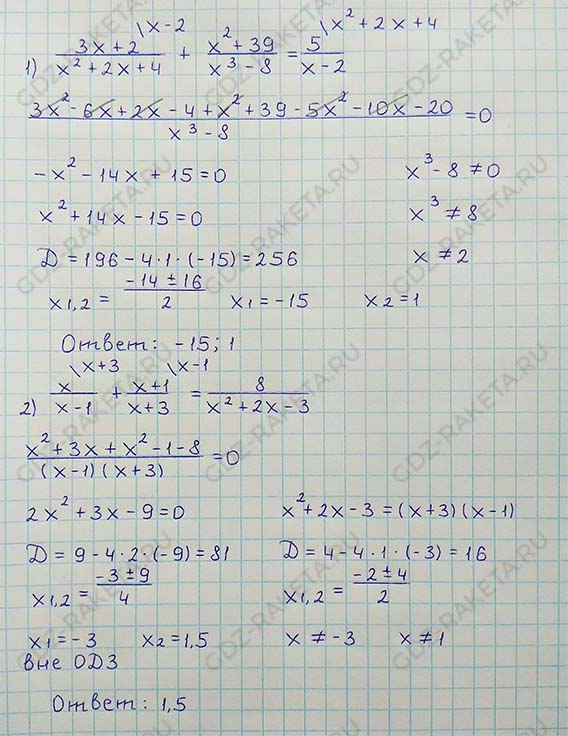 1) \frac{3x+2}{x²+2x+4} \x-2 + \frac{x²+39}{x³-8} = \frac{5}{x-2} \x²+2x+4
\frac{3x²-6x+2x-4+x²+39-5x²-10x-20}{x³-8} = 0
-x²-14x+15=0 x³-8≠0
x²+14x-15=0 x³≠8
D=196-4·1·(-15)=256 x≠2
x1,2=\frac{-14±16}{2} x1=-15 x2=1
Ответ: -15; 1
2) \frac{x}{x-1} \x+3 + \frac{x+1}{x+3} \x-1 = \frac{8}{x²+2x-3}
\frac{x²+3x+x²-1-8}{(x-1)(x+3)} = 0
2x²+3x-9=0 x²+2x-3=(x+3)(x-1)
D=9-4·2·(-9)=81 D=4-4·1·(-3)=16
x1,2=\frac{-3±9}{4} x1,2=\frac{-2±4}{2}
x1=-3 x2=1,5 x≠-3 x≠1
вне ОДЗ
Ответ: 1,5
GDZ-RAKETA.RU